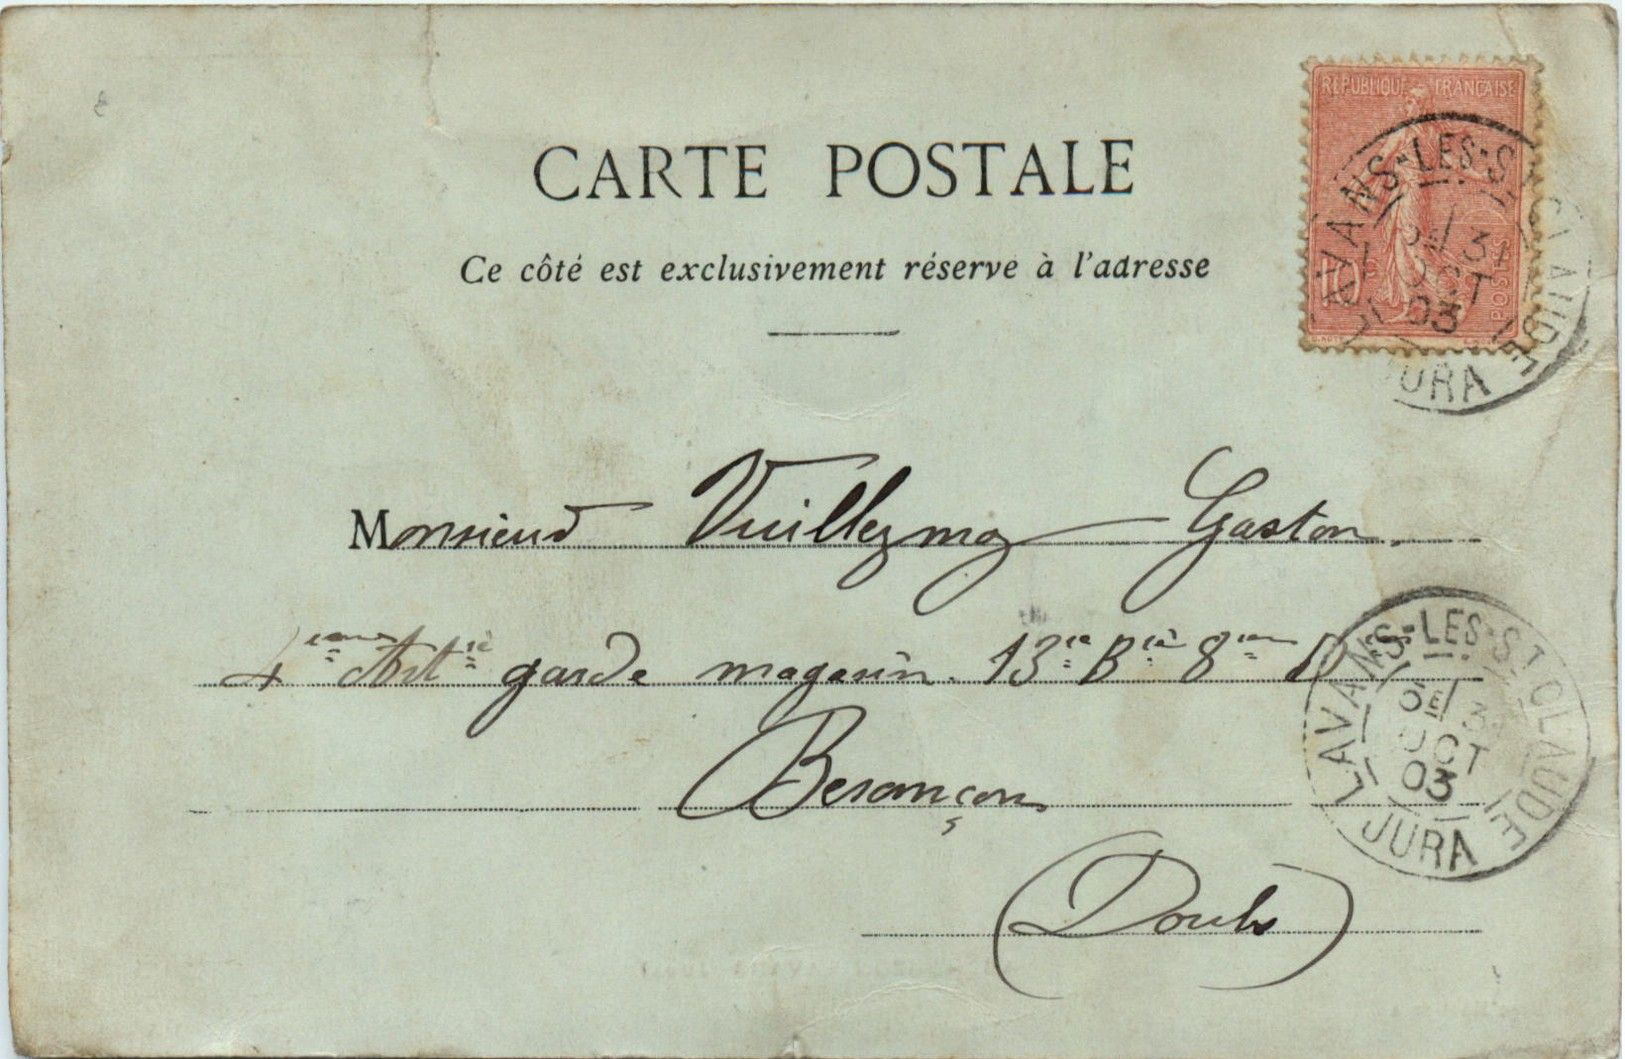 CARTE POSTALE
Ce côté est exclusivement réservé à l'adresse
RÉPUBLIQUE FRANÇAISE
10 c
POSTES
LAVANS-LES-ST CLAUDE
5E/ 31
OCT
03
JURA
Monsieur Vuillezmoz Gaston.
4ième Artie garde magasin. 13ie Bie 8ième
Besançon
(Doubs)
LAVANS-LES-ST CLAUDE
5E/ 3
OCT
03
JURA